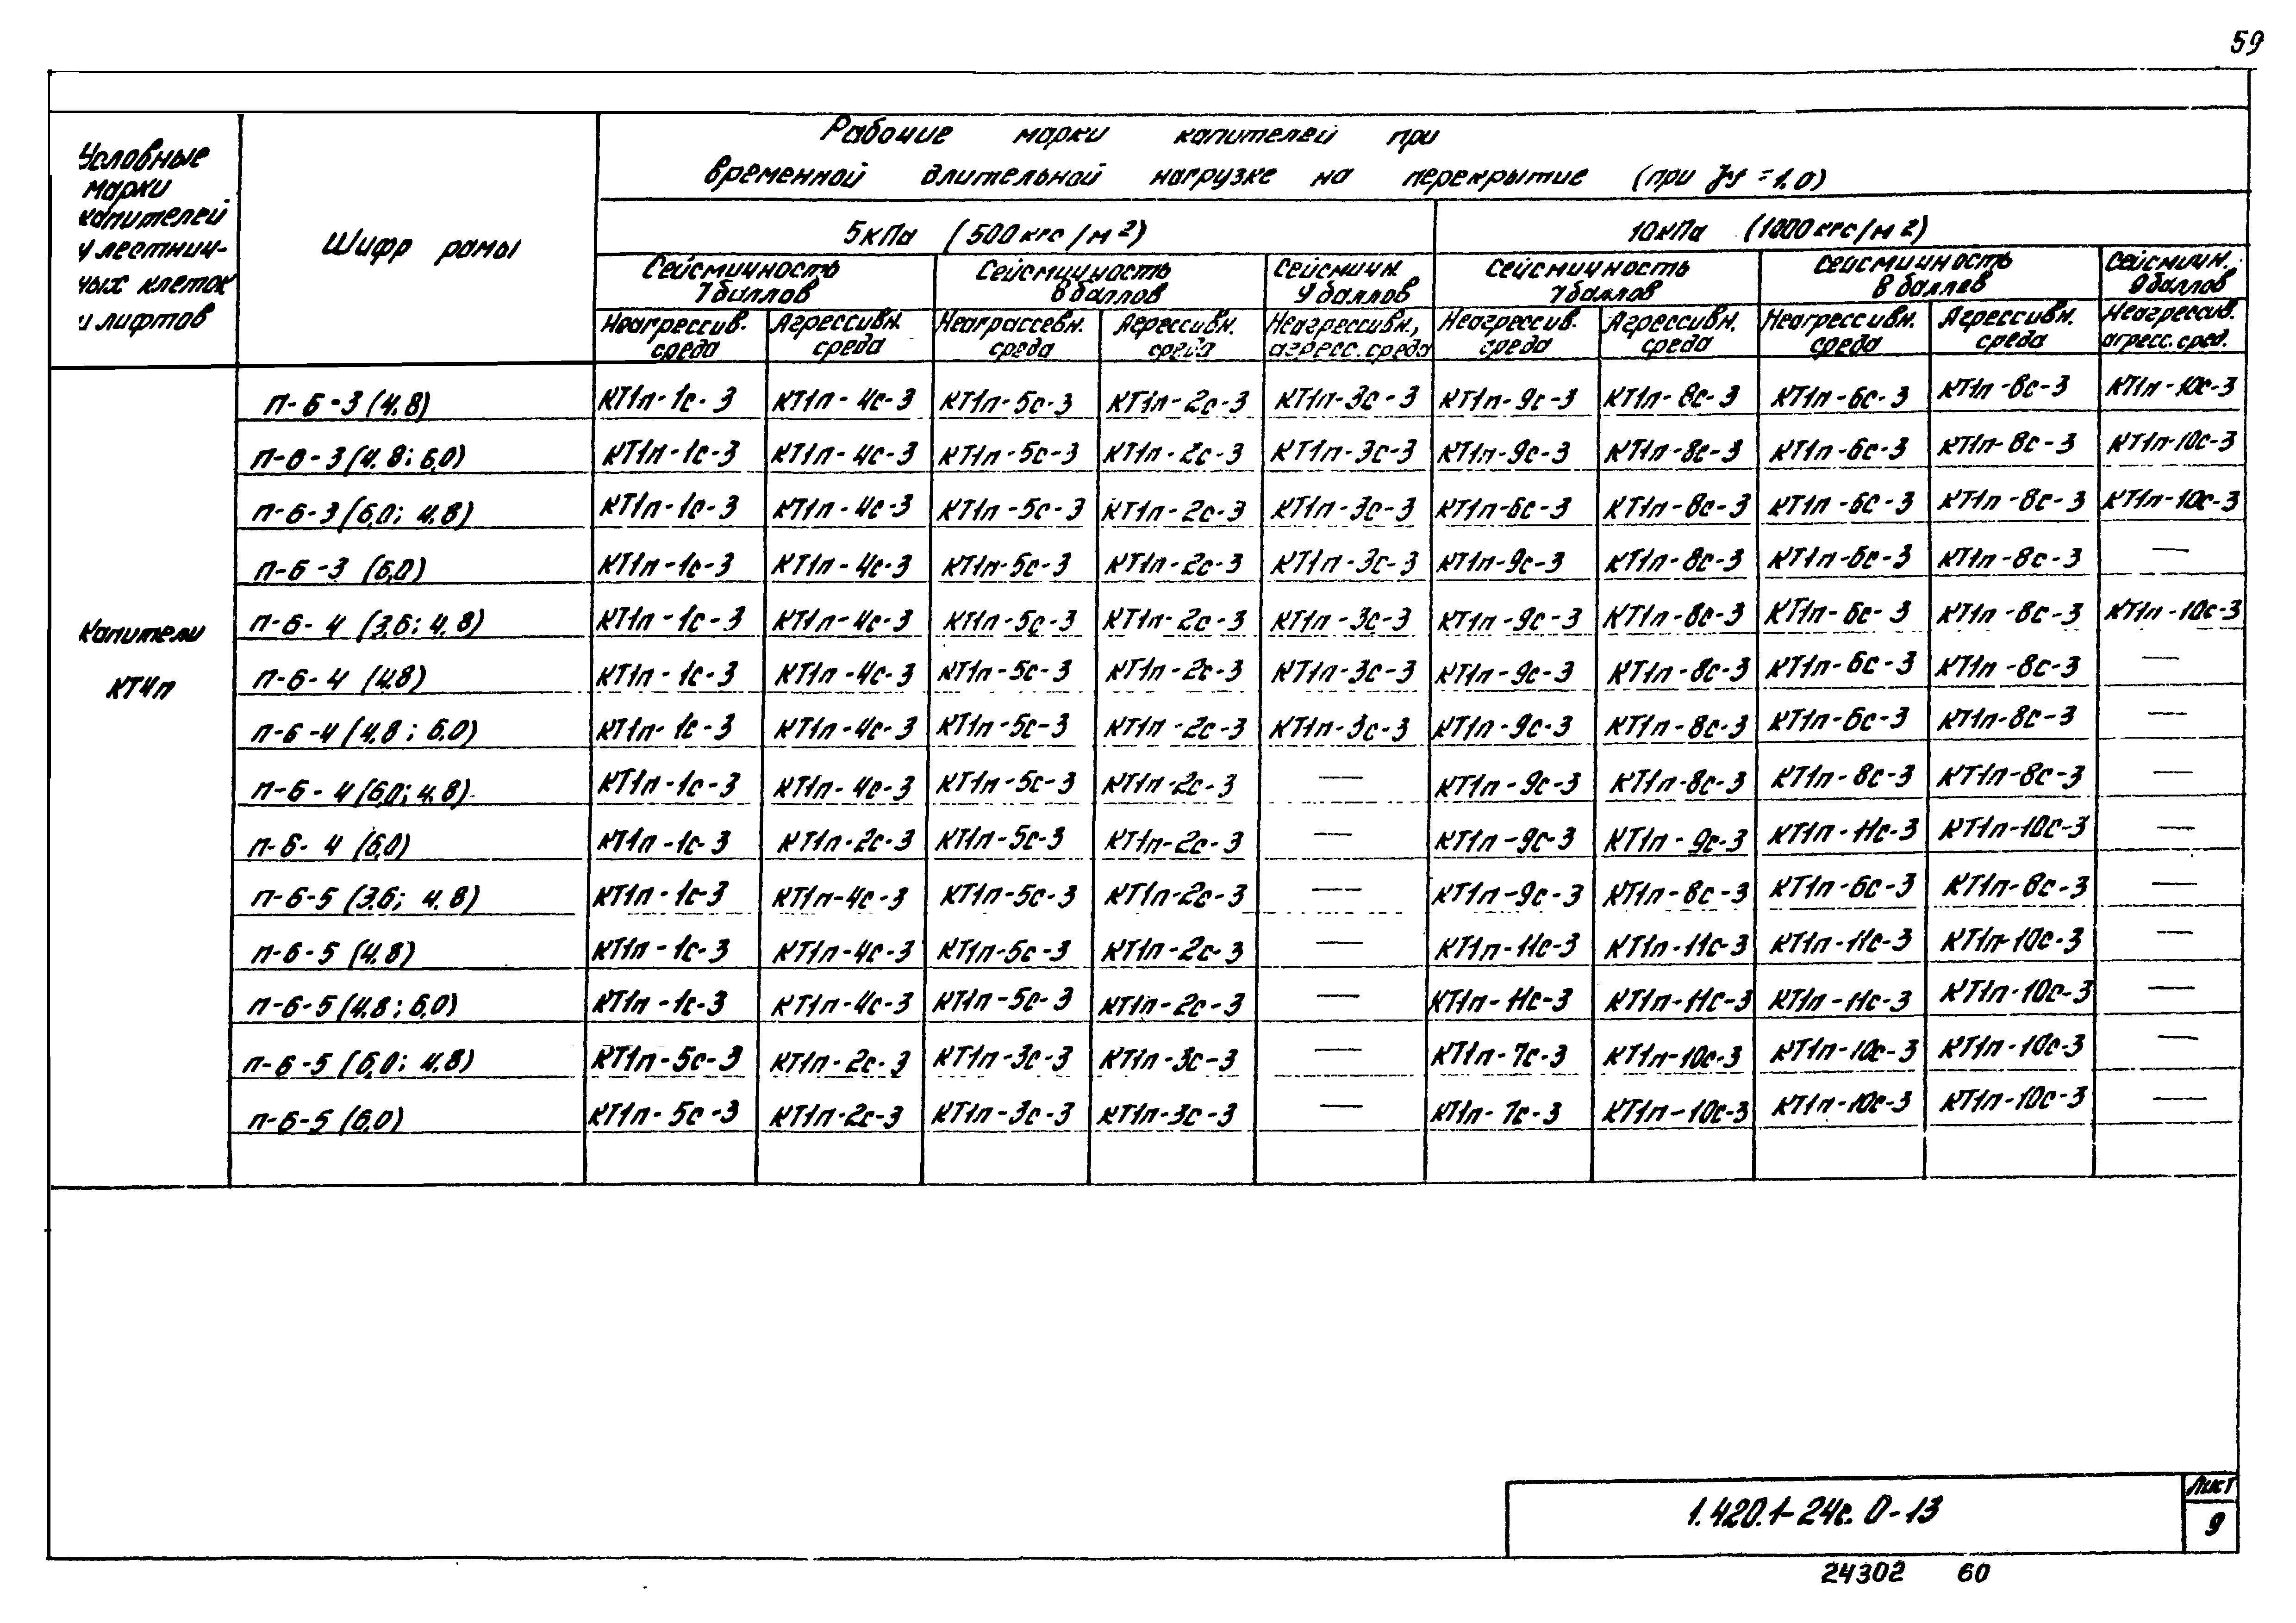 59
Условные марки капителей у лестнич-ных клеток и лифтов
Шифр рамы
Рабочие марки капителей при
временной длительной нагрузке на перекрытие (при γf = 1,0)
5кПа (500кгс/м²) 10кПа (1000кгс/м²)
Сейсмичность 7 баллов Сейсмичность 8 баллов Сейсмичн. 9 баллов Сейсмичность 7 баллов Сейсмичность 8 баллов Сейсмичн. 9 баллов
Неагрессив. среда Агрессивн. среда Неаграссевн. среда Агрессивн. среда Неагрессивн., агресс. среда Неагрессив. среда Агрессивн. среда Неагрессивн. среда Агрессивн. среда Неагрессив. агресс. сред.
Капители КТ4п
П-6-3 (4,8) КТ1п-1с-3 КТ1п-4с-3 КТ1п-5с-3 КТ1п-2с-3 КТ1п-3с-3 КТ1п-9с-3 КТ1п-8с-3 КТ1п-6с-3 КТ1п-8с-3 КТ1п-10с-3
П-6-3 (4,8; 6,0) КТ1п-1с-3 КТ1п-4с-3 КТ1п-5с-3 КТ1п-2с-3 КТ1п-3с-3 КТ1п-9с-3 КТ1п-8с-3 КТ1п-6с-3 КТ1п-8с-3 КТ1п-10с-3
П-6-3 (6,0; 4,8) КТ1п-1с-3 КТ1п-4с-3 КТ1п-5с-3 КТ1п-2с-3 КТ1п-3с-3 КТ1п-6с-3 КТ1п-8с-3 КТ1п-6с-3 КТ1п-8с-3 КТ1п-10с-3
П-6-3 (6,0) КТ1п-1с-3 КТ1п-4с-3 КТ1п-5с-3 КТ1п-2с-3 КТ1п-3с-3 КТ1п-9с-3 КТ1п-8с-3 КТ1п-6с-3 КТ1п-8с-3 —
П-6-4 (3,6; 4,8) КТ1п-1с-3 КТ1п-4с-3 КТ1п-5с-3 КТ1п-2с-3 КТ1п-3с-3 КТ1п-9с-3 КТ1п-8с-3 КТ1п-6с-3 КТ1п-8с-3 КТ1п-10с-3
П-6-4 (4,8) КТ1п-1с-3 КТ1п-4с-3 КТ1п-5с-3 КТ1п-2с-3 КТ1п-3с-3 КТ1п-9с-3 КТ1п-8с-3 КТ1п-6с-3 КТ1п-8с-3 —
П-6-4 (4,8; 6,0) КТ1п-1с-3 КТ1п-4с-3 КТ1п-5с-3 КТ1п-2с-3 КТ1п-3с-3 КТ1п-9с-3 КТ1п-8с-3 КТ1п-6с-3 КТ1п-8с-3 —
П-6-4 (6,0; 4,8) КТ1п-1с-3 КТ1п-4с-3 КТ1п-5с-3 КТ1п-2с-3 — КТ1п-9с-3 КТ1п-8с-3 КТ1п-8с-3 КТ1п-8с-3 —
П-6-4 (6,0) КТ1п-1с-3 КТ1п-2с-3 КТ1п-5с-3 КТ1п-2с-3 — КТ1п-9с-3 КТ1п-9с-3 КТ1п-11с-3 КТ1п-10с-3 —
П-6-5 (3,6; 4,8) КТ1п-1с-3 КТ1п-4с-3 КТ1п-5с-3 КТ1п-2с-3 — КТ1п-9с-3 КТ1п-8с-3 КТ1п-6с-3 КТ1п-8с-3 —
П-6-5 (4,8) КТ1п-1с-3 КТ1п-4с-3 КТ1п-5с-3 КТ1п-2с-3 — КТ1п-11с-3 КТ1п-11с-3 КТ1п-11с-3 КТ1п-10с-3 —
П-6-5 (4,8; 6,0) КТ1п-1с-3 КТ1п-4с-3 КТ1п-5с-3 КТ1п-2с-3 — КТ1п-11с-3 КТ1п-11с-3 КТ1п-11с-3 КТ1п-10с-3 —
П-6-5 (6,0; 4,8) КТ1п-5с-3 КТ1п-2с-3 КТ1п-3с-3 КТ1п-3с-3 — КТ1п-7с-3 КТ1п-10с-3 КТ1п-10с-3 КТ1п-10с-3 —
П-6-5 (6,0) КТ1п-5с-3 КТ1п-2с-3 КТ1п-3с-3 КТ1п-3с-3 — КТ1п-7с-3 КТ1п-10с-3 КТ1п-10с-3 КТ1п-10с-3 —
1.420.1-24с. 0-13
Лист
9
24302 60